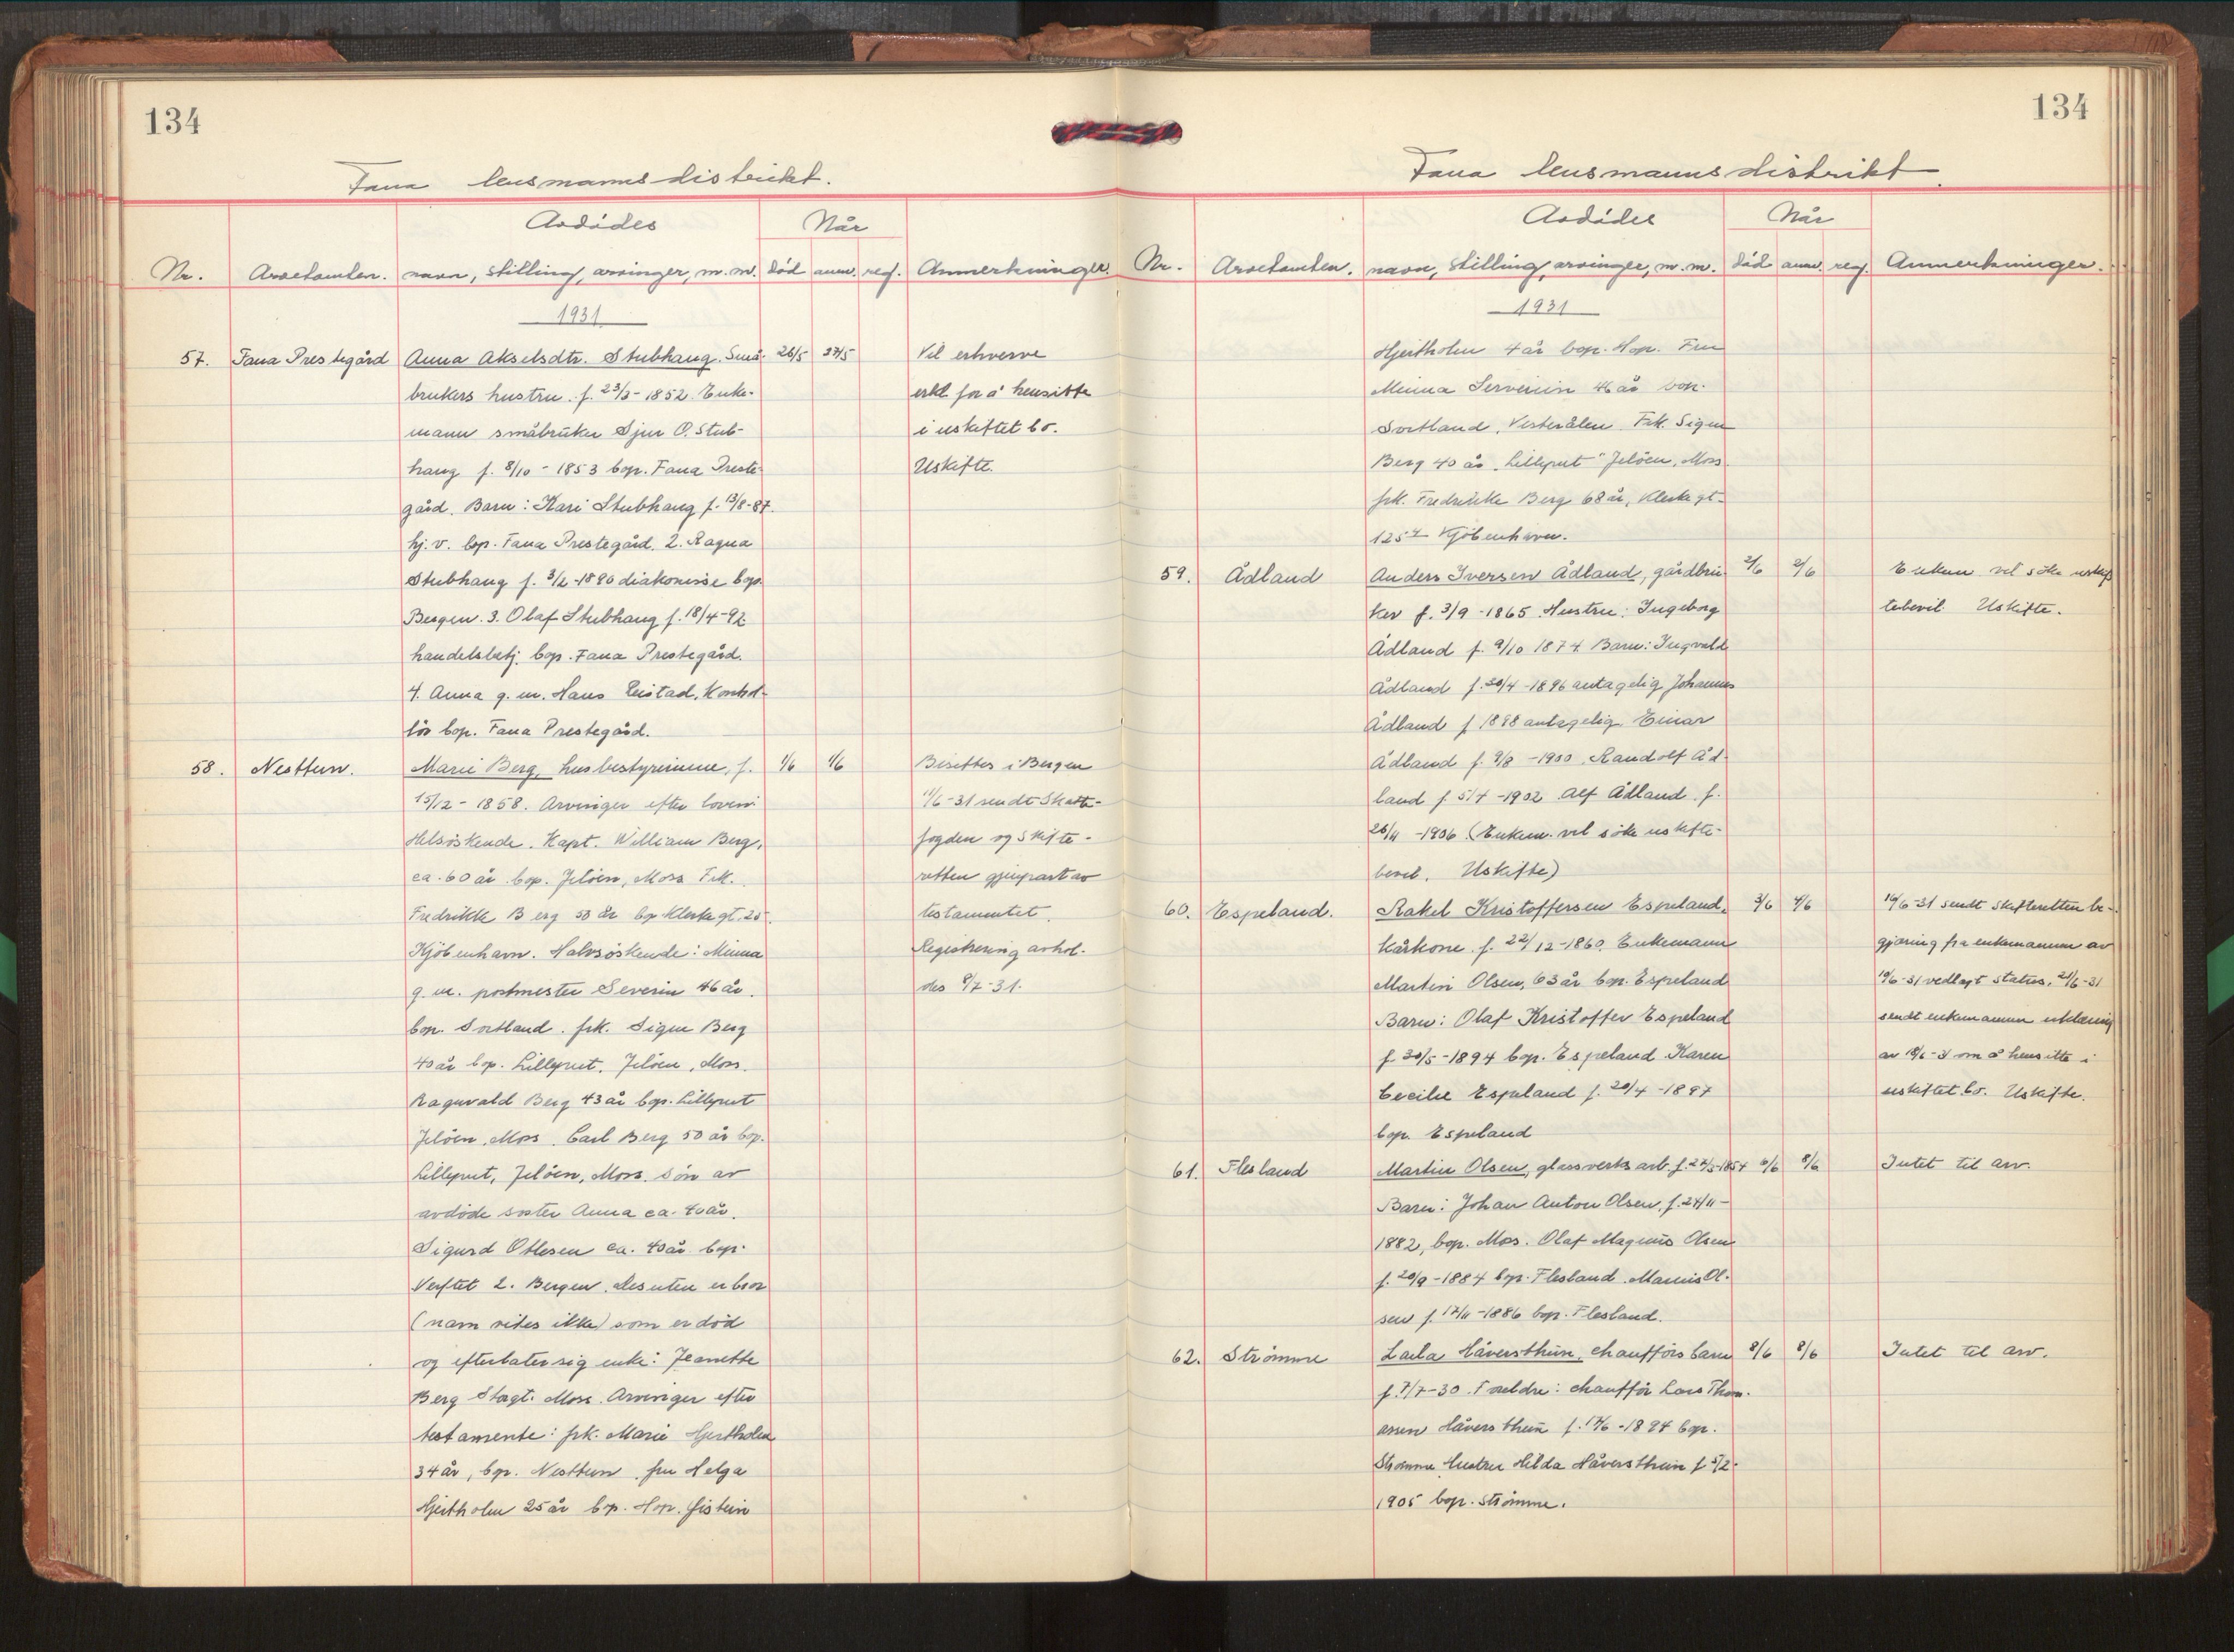 134
Fana lensmannsdistrikt.
Avdödes
Når
Nr. Arvetomten. navn, stilling, arvinger, m.m. död anm. reg. Anmerkninger.
1931
57. Fana Prestegård Anna Akselsdtr. Stubhaug. Små- 26/5 27/5 Vil erhverve
brukers hustru. f. 23/3 - 1852. Enke- erkl. for å hensitte
mann småbruker Sjur O. Stub- i uskiftet bo.
haug f. 8/10 - 1853 bop. Fana Preste- Uskifte.
gård. Barn: Kari Stubhaug f. 13/8-87.
hj. v. bop. Fana Prestegård. 2. Ragna
Stubhaug f. 3/2-1890 diakonisse bop.
Bergen. 3. Olaf Stubhaug f. 18/4-92
handelsbetj. bop. Fana Prestegård.
4. Anna g. m. Hans
bop. Fana Prestegård.
58. Nesttun. Marie Berg, husbestyrerinne, f. 1/6 1/6 Bisettes i Bergen
15/12 - 1858. Arvinger efter loven: 11/6-31 sendt Skatte-
Helsöskende. Kapt. William Berg, fogden og Skifte-
ca. 60 år bop. Jelöen, Moss Frk. retten gjenpart av
Fredrikke Berg 58 år bop Klerkegt. 25 testamentet.
Kjöbenhavn. Halvsöskende: Minna Registrering avhol-
g. m. postmester Severin 46 år. des 8/7-31.
bop. Sortland. frk. Signe Berg
40 år bop. Lilleput. Jelöen, Moss.
Ragnvald Berg 43 år bop. Lilleput
Jelöen, Moss. Carl Berg 50 år bop.
Lilleput, Jelöen, Moss. Sön av
avdöde söster Anna ca. 40 år.
Sigurd Ottesen ca. 40 år bop.
Verftet 2. Bergen. Desuten en bror
(navn vites ikke) som er död
og efterlater sig enke: Jeanette
Berg Stogt. Moss. Arvinger efter
testamente: frk. Marie Hjertholm
34 år, bop. Nesttun. fru Helga
Hjertholm 25 år bop. Hop. Eistein
134
Fana lensmannsdistrikt
Avdödes
Når
Nr. Arvetomten. navn, stilling, arvinger, m.m. död anm. reg. Anmerkninger.
1931
Hjertholm 4 år bop. Hop. Fru
Minna Serverin 46 år bop.
Sortland, Vesterålen Frk. Signe
Berg 40 år "Lilleput" Jelöen, Moss
frk. Fredrikke Berg 68 år, Klerkegt.
Kjöbenhavn.
59. Ådland Anders Iversen Ådland, gårdbru- 2/6 2/6 Enken vil söke uskif-
ker f. 3/9 - 1865. Hustru: Ingeborg tebevil Uskifte.
Ådland f. 9/10 1874. Barn: Ingvald
Ådland f. 30/4 - 1896 antagelig Johannes
Ådland f 1898 antagelig. Einar
Ådland f. 9/8 - 1900. Randolf Åd-
land f. 5/4 - 1902 Alf Ådland f.
26/11 - 1906. (Enken vil söke uskifte-
bevil. Uskifte)
60. Espeland. Rakel Kristoffersen Espeland, 3/6 4/6 19/6-31 sendt skifteretten be-
kårkone f. 22/12-1860. Enkemann gjæring fra enkemannen av
Martin Olsen, 63 år bop. Espeland 10/6-31 vedlagt status. 21/6-31
Barn: Olaf Kristoffer Espeland sendt enkemannen erklæring
f. 30/5 - 1894 bop. Espeland Karen av 18/6-31 om å hensitte i
Cecilie Espeland f. 20/4 - 1897 uskiftet bo. Uskifte.
bop. Espeland
61. Flesland Martin Olsen, glassverks arb. f. 27/5-1854 6/6 8/6 Intet til arv.
Barn: Johan Anton Olsen, f. 24/11 -
1882, bop. Mos. Olaf Magnus Olsen
f. 20/9 - 1884 bop. Flesland. Marius Ol-
sen f. 17/11 - 1886 bop. Flesland.
62. Strömme Laila Håversthun, chaufförs barn 8/6 8/6 Intet til arv.
f. 7/7-30. Foreldre: chaufför Lars Thom-
assen Håversthun f. 17/6 - 1894 bop.
Strömme Hustru Hilda Håversthun f 5/2-
1905 bop. Strömme.